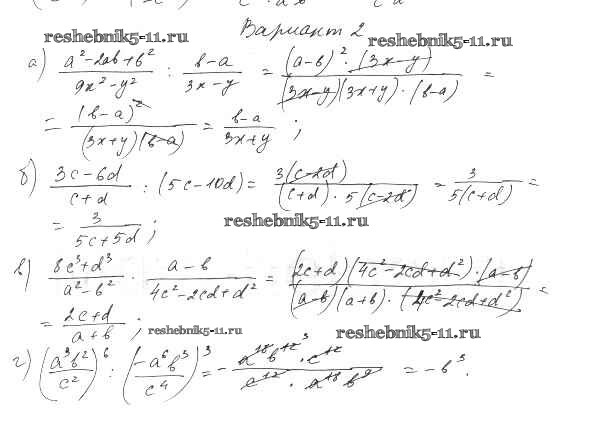 Вариант 2
reshebnik5-11.ru reshebnik5-11.ru
а) (a² - 2ab + b²)/(9x² - y²) : (b - a)/(3x - y) = ((a - b)² · (3x - y))/((3x - y)(3x + y) · (b - a)) =
= (b - a)²/((3x + y)(b - a)) = (b - a)/(3x + y) ;
б) (3c - 6d)/(c + d) : (5c - 10d) = 3(c - 2d)/((c + d) · 5(c - 2d)) = 3/(5(c + d)) =
= 3/(5c + 5d) ; reshebnik5-11.ru
в) (8c³ + d³)/(a² - b²) · (a - b)/(4c² - 2cd + d²) = ((2c + d)(4c² - 2cd + d²) · (a - b))/((a - b)(a + b) · (4c² - 2cd + d²)) =
= (2c + d)/(a + b) ; reshebnik5-11.ru reshebnik5-11.ru
г) (a³b²/c²)⁶ : (-a⁶b³/c⁴)³ = - (a¹⁸b¹² ³ · c¹²)/(c¹² · a¹⁸b⁹) = -b³.